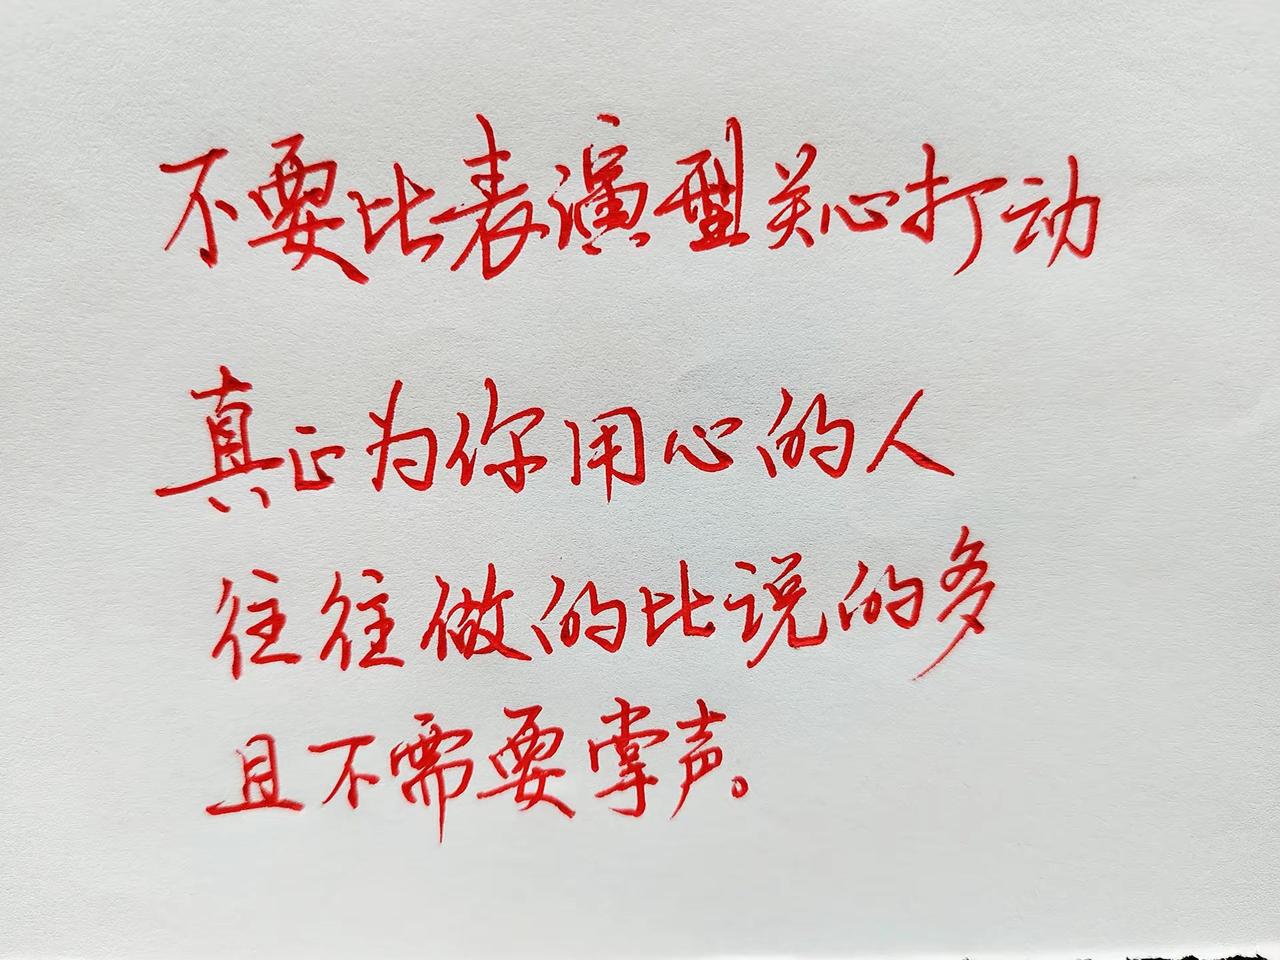 不要比表演型关心打动
真正为你用心的人
往往做的比说的多
且不需要掌声。